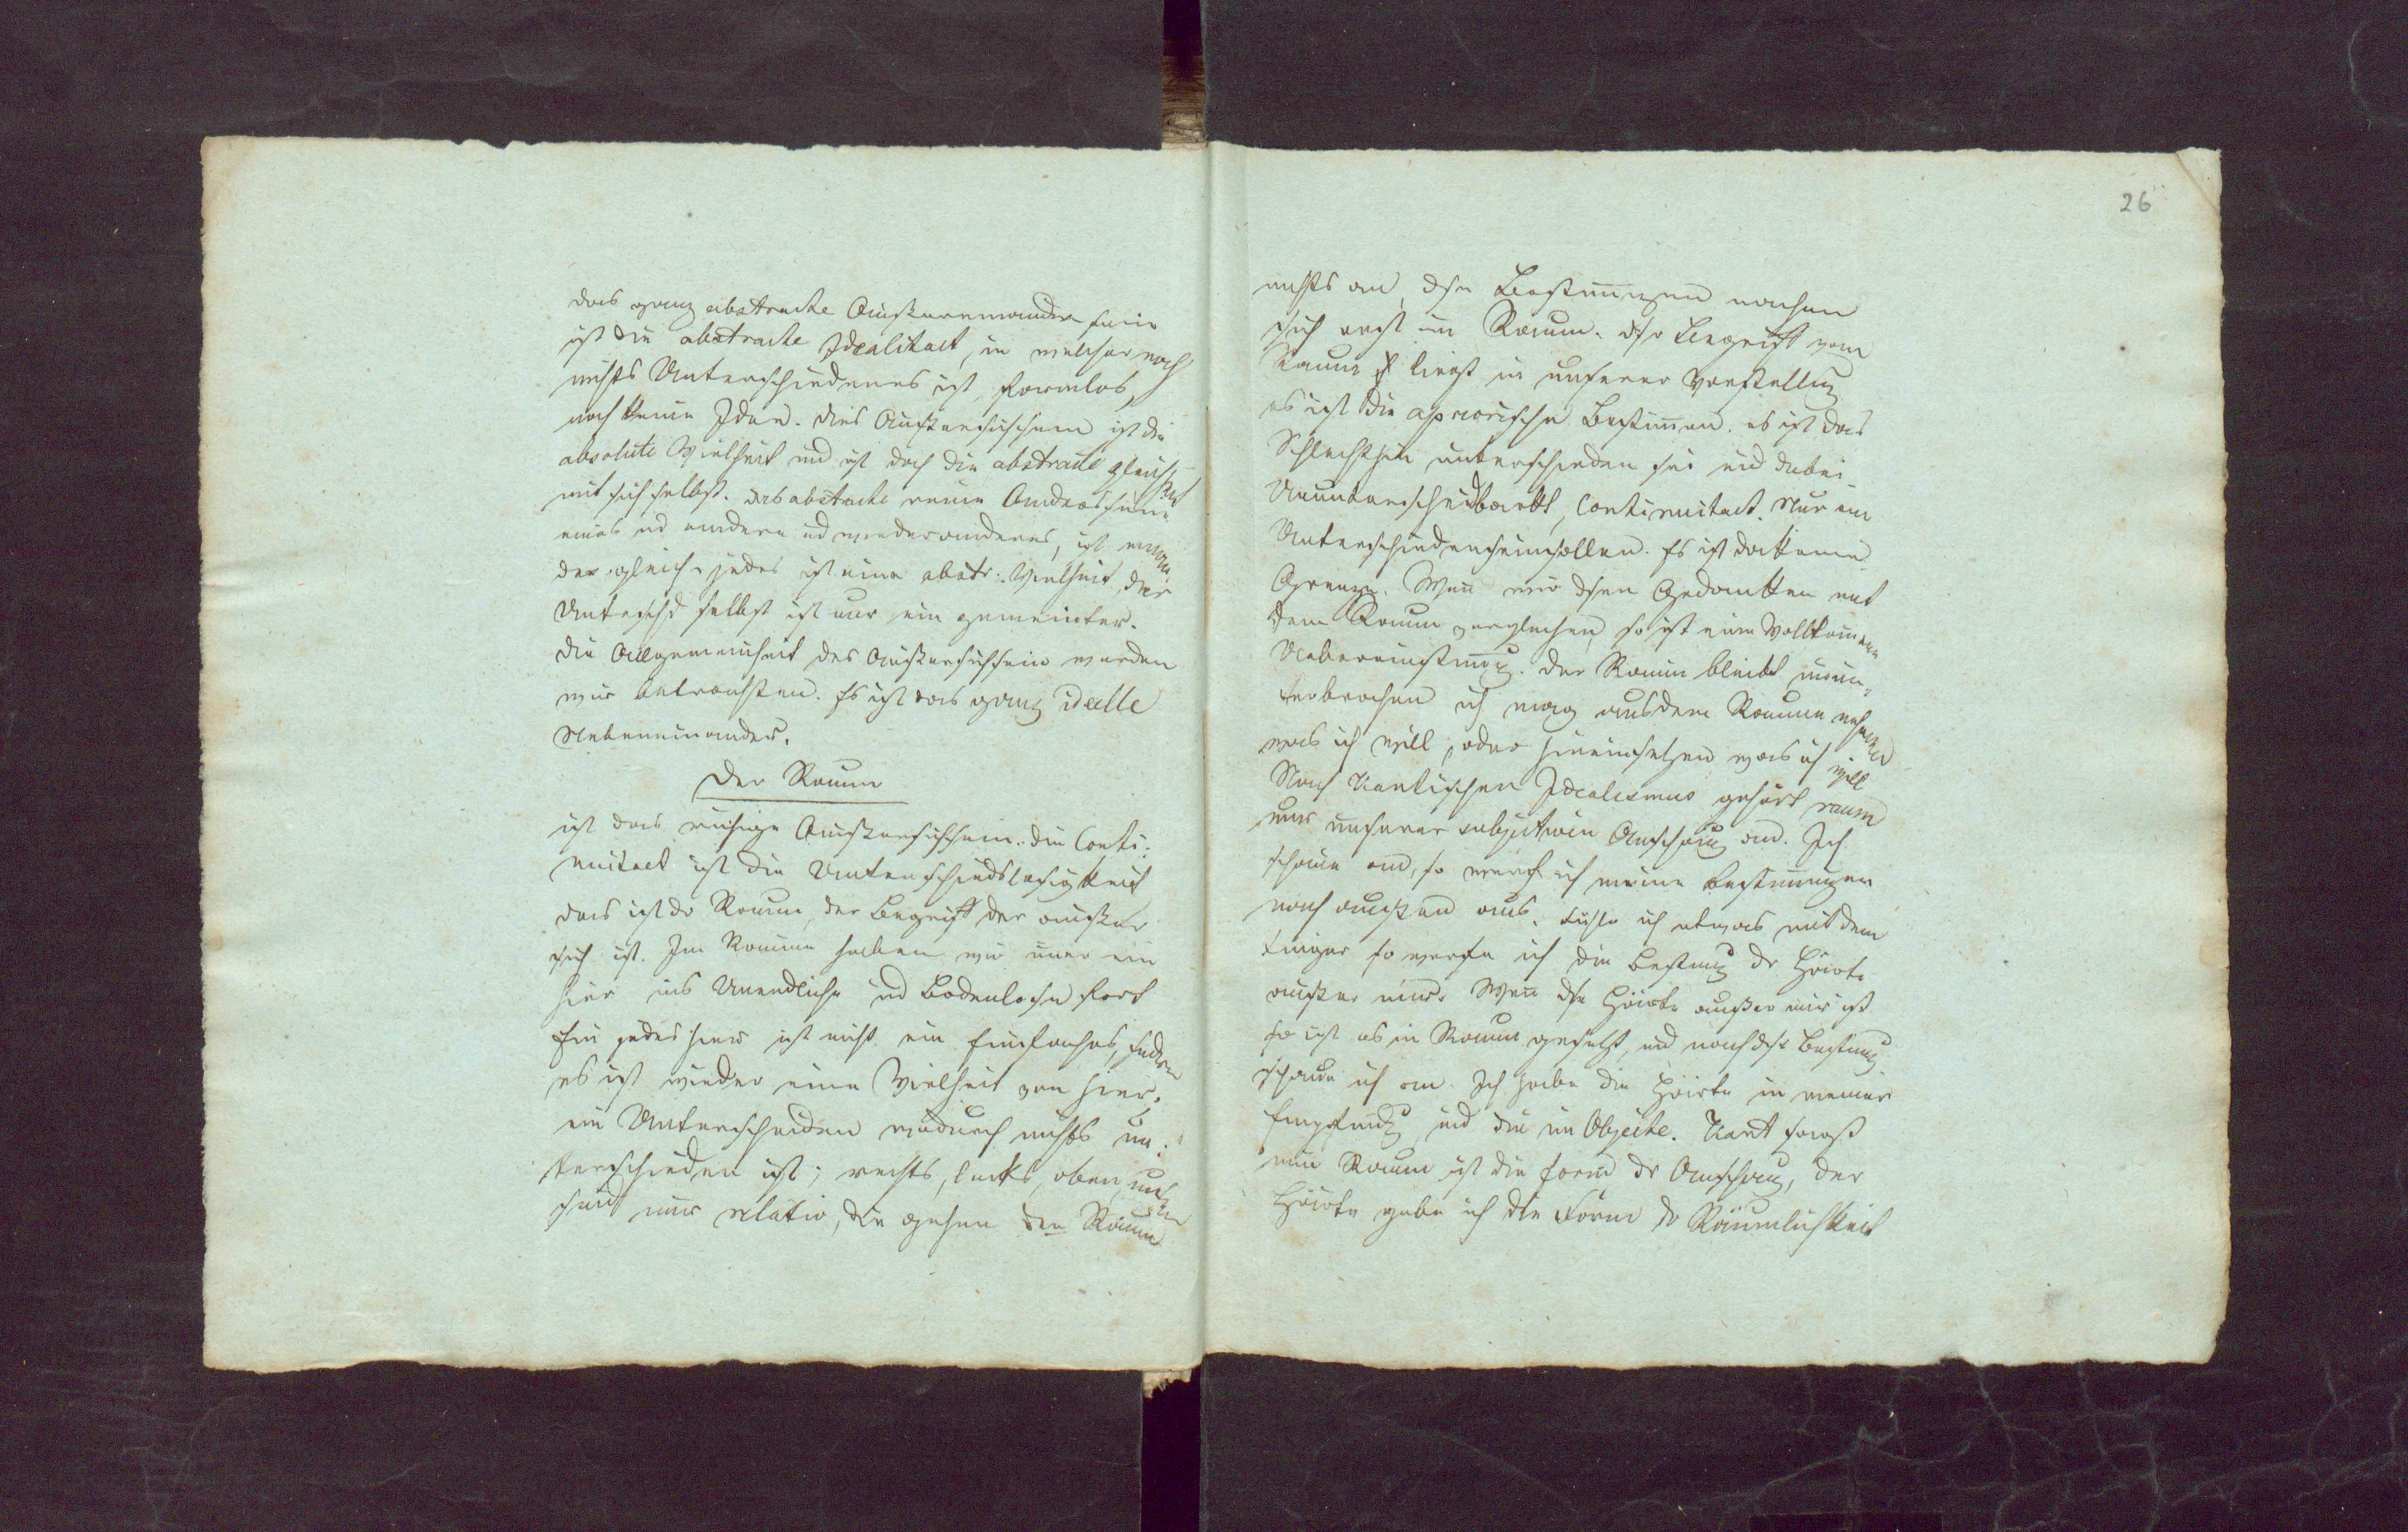 das ganz abstracte Außereinandersein
ist die abstracte Idealitaet, in welcher noch
nichts Unterschiedenes ist, formlos,
noch keine Idee. Dies Außersichsein ist die
absolute Vielheit und ist doch die abstracte Gleichheit
mit sich selbst. Das abstracte reine Anderssein
eines ud andere ud wiederanderes, ist einan-
der gleich, jedes ist eine abstr: Vielheit, der
Untschd selbst ist nur ein gemeinter.
Die Allgemeinheit des Außersichsein werden
wir betrachten. Es ist das ganz ideelle
Nebeneinander.
Der Raum
ist das ruhige Außersichsein. die Conti-
nuitaet ist die Unterschiedslosigkeit
das ist dr Raum, der Begriff der außer
sich ist. Im Raume haben wir nur ein
hier ins Unendliche ud Bodenlose fort
Ein jedes hier ist nicht ein Einfaches, sndrn
es ist wieder eine Vielheit von hier.
ein Unterscheiden wodurch nichts un-
terschieden ist; rechts, links, oben, unten
sind nur relativ, die gehen den Raum
26
nichts an, dse Bestim̄ungen machen
sich erst im Raum. dsr Begriff vom
Raum liegt in unserer Vorstellung
es ist die apriorische Bestim̄en. es ist das
Schlechthin unterschieden sei und dabei
Ununterscheidbarkt, Continuitaet. Nur ein
Unterschiedenseinsollen. Es ist da keine
Grenze. Wen̄ wir dsen Gedanken mit
dem Raum vergleichen, so ist eine vollkom̄ene
Uebereinstim̄ung. Der Raum bleibt unun-
terbrochen ich mag aus dem Raume nehmen
was ich will, oder hineinsetzen was ich will
Nach Kantischen Idealismus gehört raum
nur unserer subjectiven Anschauung an. Ich
schaue an, so werfe ich meine Bestim̄ungen
nach außen aus. Fühle ich etwas mit dem
Finger so werfe ich die Bestimg dr Härte
außer mir. Wen̄ dse Härte außer mir ist
so ist es in Raum gesetzt, und nach dsr Bestimg
schaue ich an. Ich habe die Härte in meiner
Empfindg und die im Objecte. Kant sagt
nun Raum ist die Form dr Anschaug, der
Härte gebe ich die Form dr Räumlichkeit